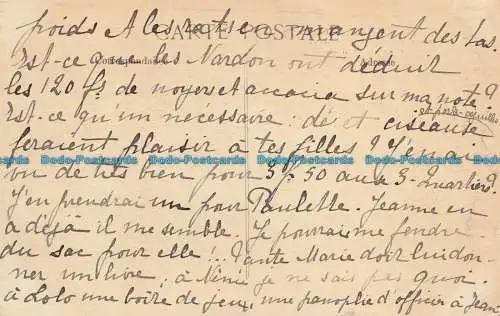 froids et les rats en mangent des tas.
CARTE POSTALE
Est-ce que les Nardon ont déduit
Correspondance
Adresse
les 120 fs de noyer et acacia sur ma note?
Est-ce qu'un nécessaire: dé et ciseaux
et porte-aiguilles
feraient plaisir à tes filles? J'en ai
Bodo-Postcards Bodo-Postcards Bodo-Postcards Bodo-Postcards
vu de très bien pour 3f.50 aux 3-Quartiers?
J'en prendrai un pour Paulette. Jeanne en
a déjà il me semble. Je pourrai me fendre
du sac pour elle!.. Tante Marie doit lui don-
ner un livre; à Nini je ne sais pas quoi.
à Lolo une boîte de jeux, une panoplie d'officier à Jean